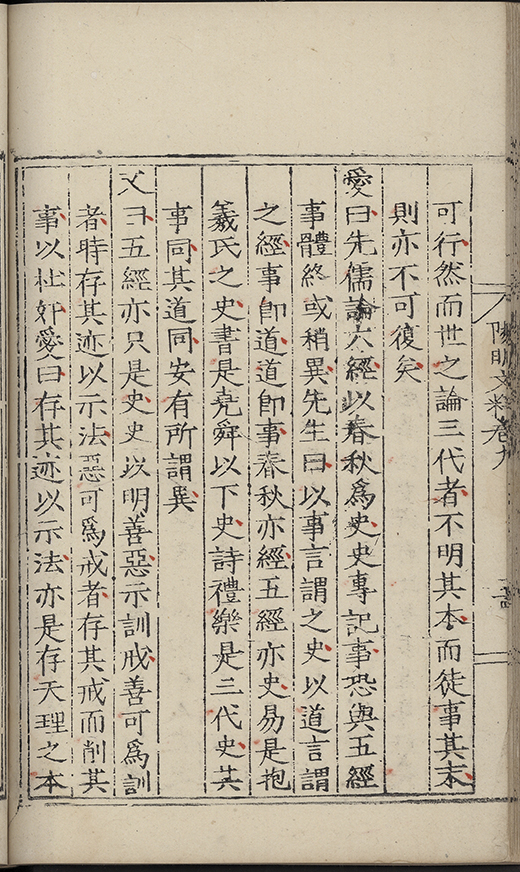 可行然而世之論三代者不明其本而徒事其末
則亦不可復矣
愛曰先儒論六經以春秋爲史史專記事恐與五經
事體終或稍異先生曰以事言謂之史以道言謂
之經事卽道道卽事春秋亦經五經亦史易是抱
羲氏之史書是堯舜以下史詩禮樂是三代史其
事同其道同安有所謂異
又曰五經亦只是史史以明善惡示訓戒善可爲訓
者時存其迹以示法惡可爲戒者存其戒而削其
事以杜奸愛曰存其迹以示法亦是存天理之本